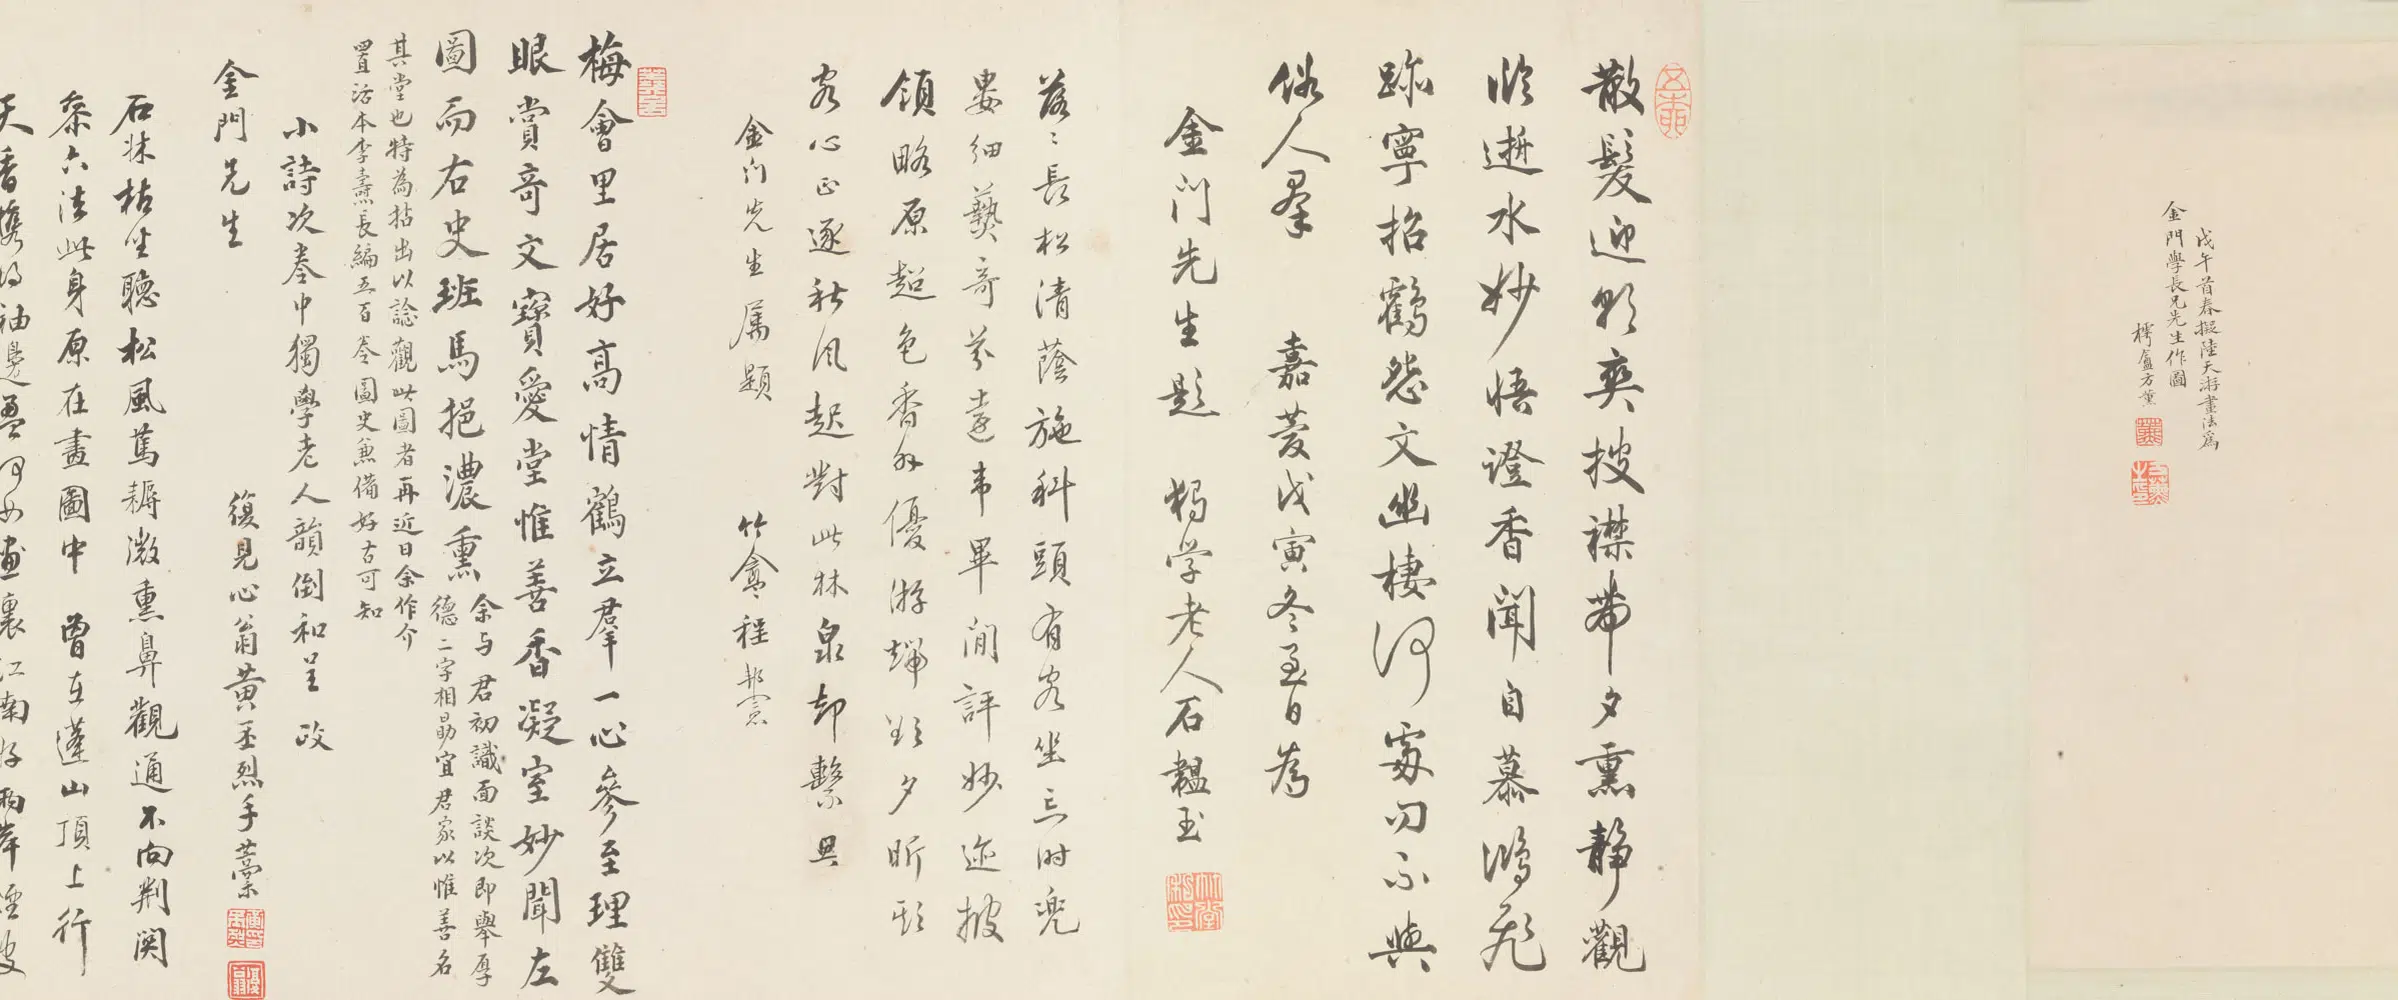 戊午首春擬陸天游畫法為
金門學長兄先生作圖
樗盦方薰
散髮迎朝爽披襟帶夕熏靜觀
臨逝水妙悟證香聞自慕鴻飛
跡寧招鶴怨文幽棲何處勿不與
俗人羣 嘉慶戊寅冬至日為
金門先生題 獨学老人石韞玉
落〻長松清蔭施科頭有客坐忘时兜
婁細爇奇芬遠韦畢閒評妙迹披
領略原超色香外優游端欲夕昕
客心正逐秋风起對此林泉却繫思
金门先生属題 竹盦程邦憲
梅會里居好高情鶴立羣一心參至理雙
眼賞奇文寶愛堂惟善香凝室妙聞左
圖而右史班馬挹濃熏
余与君初識面談次即舉厚
德二字相勗宜君家以惟善名
其堂也特為拈出以諗觀此圖者再近日余作介
置活本李燾長編五百卷圖史兼備好古可知
小詩次卷中獨學老人韻倒和呈 政
金門兄生
復見心翁黃丕烈手藁
石牀枯坐聽松風蔦耨微熏鼻觀通不向荆関
叅六法此身原在畫圖中 曾在蓬山頂上行
天香攜得袖邊盈何如畫裏江南好兩岸煙